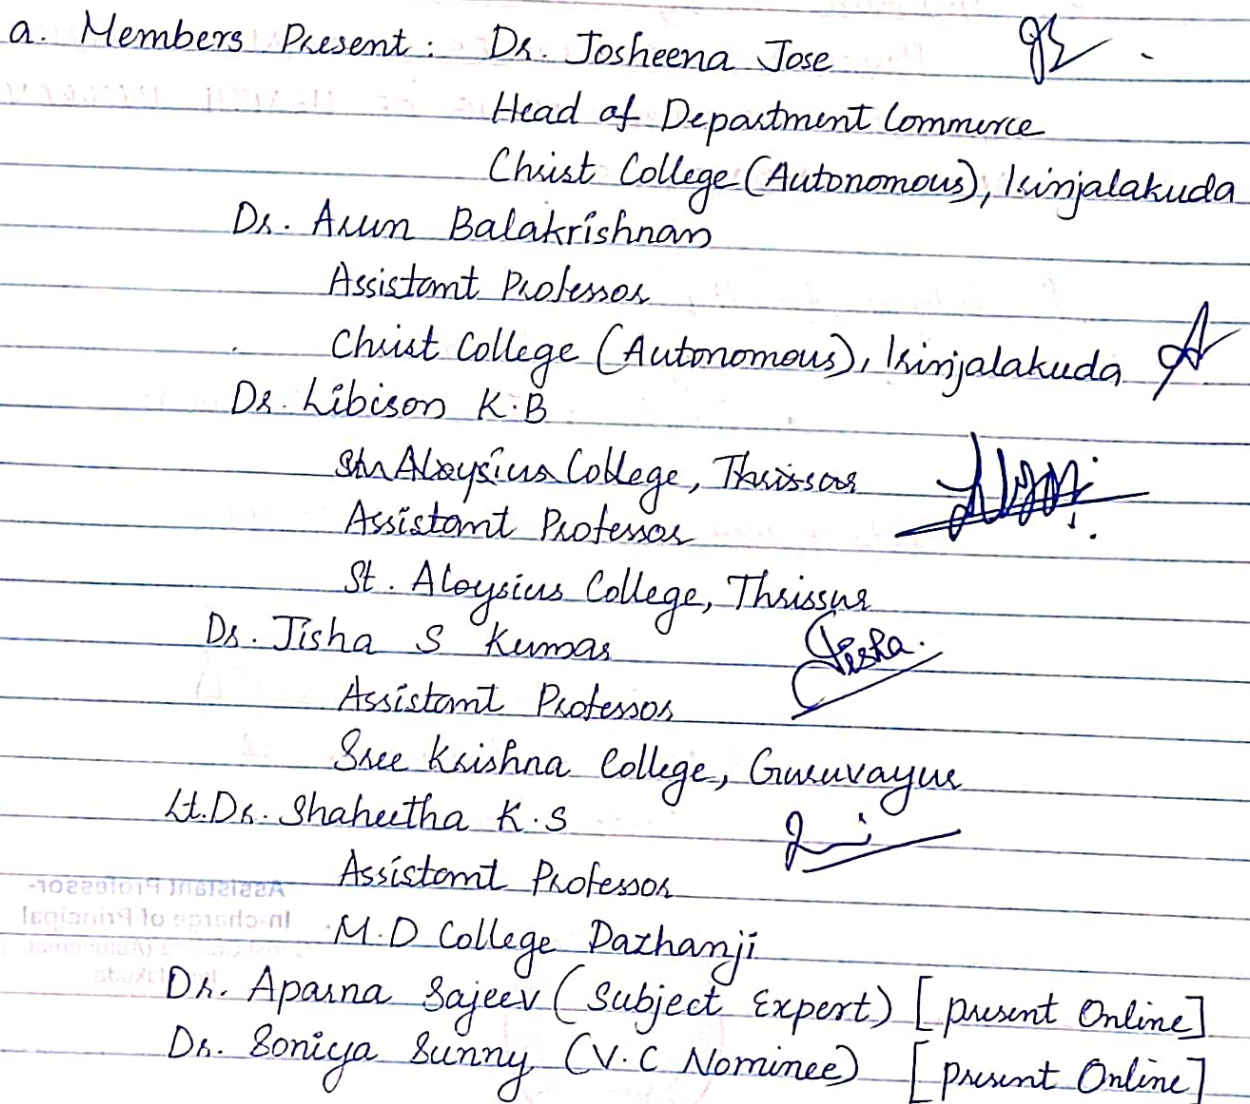 a. Members Present : Dr. Josheena Jose
Head of Department Commerce
Christ College (Autonomous), Irinjalakuda
Dr. Arun Balakrishnan
Assistant Professor
Christ College (Autonomous), Irinjalakuda
Dr. Libison K.B
St. Aloysius College, Thrissur
Assistant Professor
St. Aloysius College, Thrissur
Dr. Jisha S Kumar
Jisha.
Assistant Professor
Sree Krishna College, Guruvayur
Lt. Dr. Shaheetha K.S
Assistant Professor
M.D College Pazhanji
Dr. Aparna Sajeev (Subject Expert) [present Online]
Dr. Soniya Sunny (V.C Nominee) [present Online]